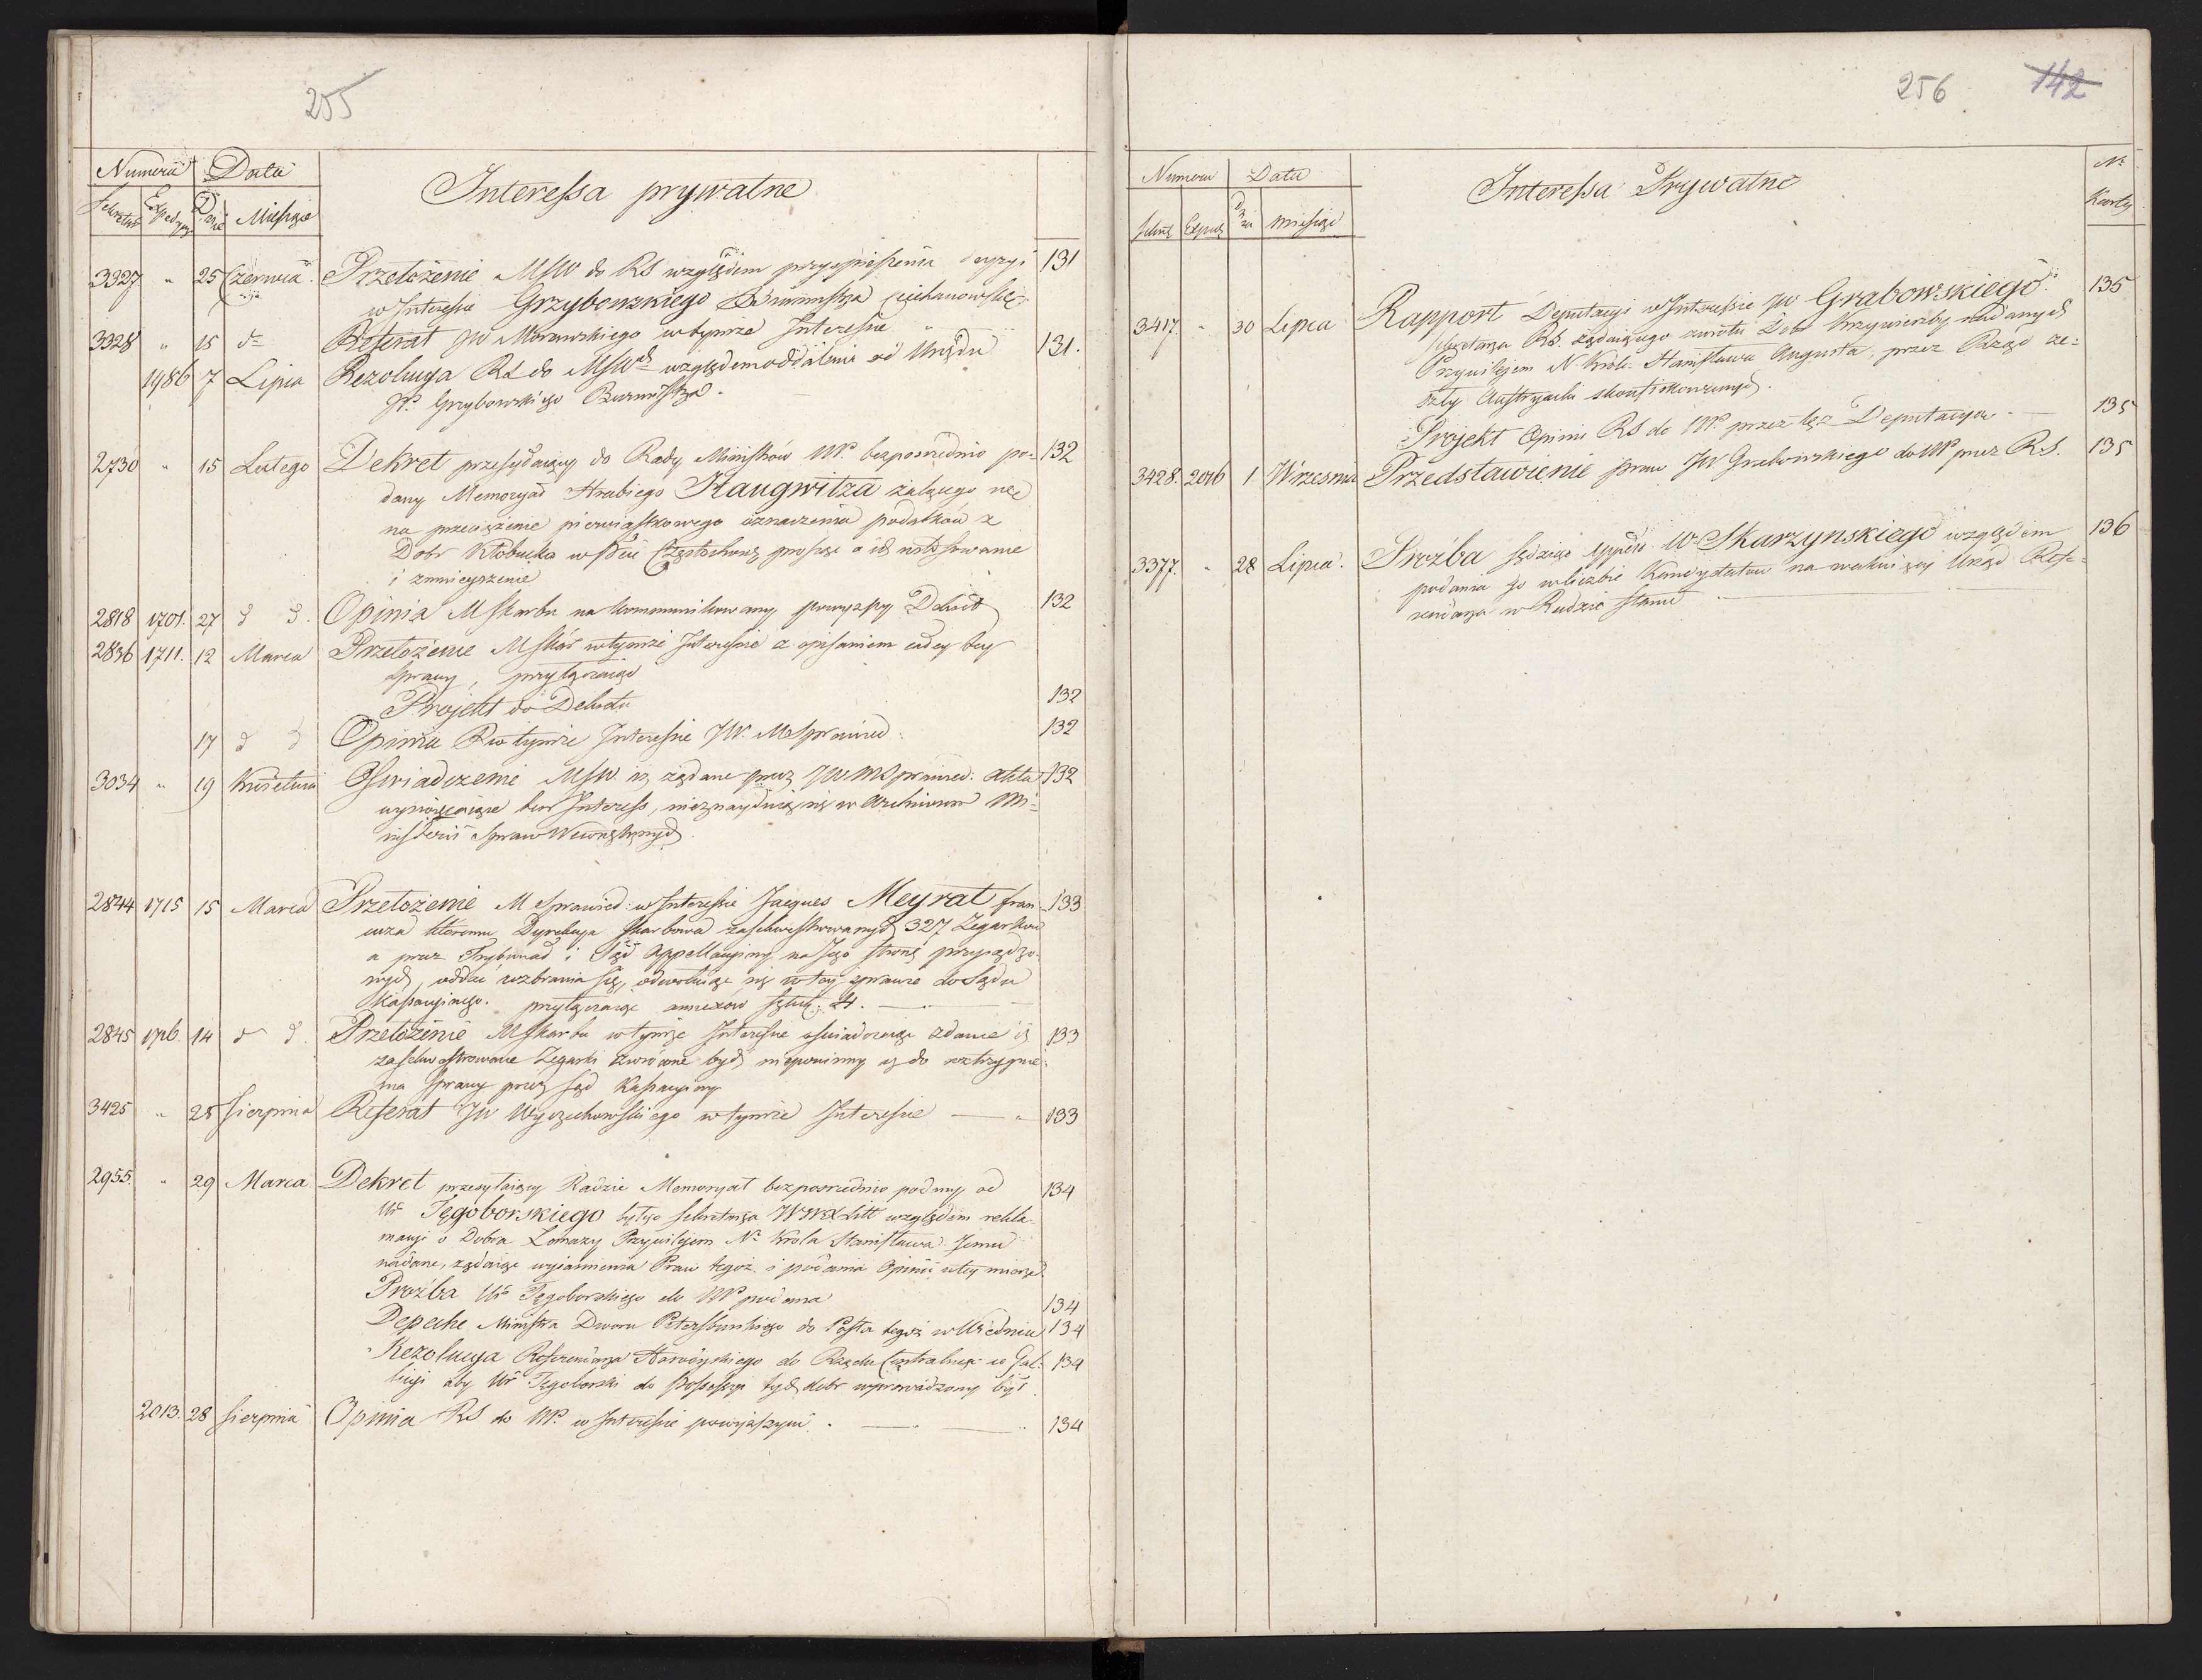 255
Numera Data
Interessa prywatne
Sekretar Expedycy Dnie Miesiące
3327 " 25 Czerwca Przełożenie MSW do RS względem przyspieszenia decyzyi 131
w Interesie Grzybowskiego Burmistrza
3328 " 15 do Referat JW Morawskiego w tymże Interesie "
1986 7 Lipca Rezolucya RS do MSW względem oddalenia od Urzędu 131.
JP. Grzybowskiego Burmistrza.
2730 " 15 Lutego Dekret przesyłaiący do Rady Ministrów NP. bezpośrednio po= 132
dany Memoryał Hrabiego Haugwitza żalącego się
na przeciążenie pierwiastkowego oznaczenia podatków z
Dobr Kłobucka w Pcie Częstochows prosząc o ich
i zmnieyszenie
2818 1701. 27 d d. Opinia MSkarbu na kommunikowany powyższy Dekret 132
2836 1711. 12 Marca Przełożenie MSkar w tymże Interesie z opisaniem całey tey
sprawy, przyłączaiąc
Projekt do Dekretu 132
17 d d Opinia R w tymże Interesie JW. MSprawied: 132
3034 " 19 Kwietnia Oświadczenie MSW iż żądane przez JW MSprawied: akta 132
ten Interess, nieznayduią się w Archiwum Mi=
nisterii Spraw Wewnętrznych.
2844 1715 15 Marca Przełożenie MSprawied: w Interesie Jacques Meyrat fran= 133
cuza któremu Dyrekcya Skarbowa zasekwestrowanych 327 Zegarków
a przez Trybunał i Sąd Appellacyiny na Jego stronę przysądzo=
nych, oddać wzbrania się, odwołuiąc się w tey sprawie do Sądu
Kassacyinego. przyłączaiąc annexów sztuk: 4.
2845 1716. 14 d d. Przełożenie MSkarbu w tymże Interesie oświadczaiąc zdanie iż 133
zasekwestrowane Zegarki zwrócone bydź niepowinny aż do roztrzygnie=
nia Sprawy przez Sąd Kassacyiny
3425 " 28 Sierpnia Referat JW Wyczechowskiego w tymże Interesie " 133
2955. " 29 Marca Dekret przesyłaiący Radzie Memoryał bezpośrednio podany od 134
Ur Tęgoborskiego byłego Sekretarza WWXLitt względem rekla=
macyi o Dobra Łomazy Przywilejem N. Krola Stanisława Jemu
nadane, żądaiąc wyiaśnienia Praw tegoż i podania Opinii w tey mierze
Prożba Ur Tęgoborskiego do NP podana 134
Depeche Ministra Dworu Petersburskiego do Posła tegoż w Wiedniu 134
Rezolucya Referendarza do Rządu Centralnego w Gal= 134
licyi aby Ur Tęgoborski do Possessyi tych dobr wprowadzony był.
2013. 28 Sierpnia Opinia RS do NP. w Interesie powyższym. 134
256 142
Numera Data
Interessa Prywatne
No Karty
Sekret Exped Dnia Miesiąc
3417. " 30 Lipca Rapport Deputacyi w Interesie JW Grabowskiego 135
Sekretarza RS. żądaiącego zwrotu Dobr Krzywierzby nadanych
Przywilejem N Króla Stanisława Augusta, przez Rząd ze=
szły Austryacki skonfiskowanych.
Projekt Opinii RS do NP. przez tęż Deputacyą. 135
3428. 2016 1 Września Przedstawienie praw JW Grabowskiego do NP przez RS. 135
3377. " 28 Lipca. Prożba Sędziego Appello W. Skarzynskiego względem 136
podania go w liczbie Kandydatów na wakuiący Urząd Refe=
rendarza w Radzie Stanu